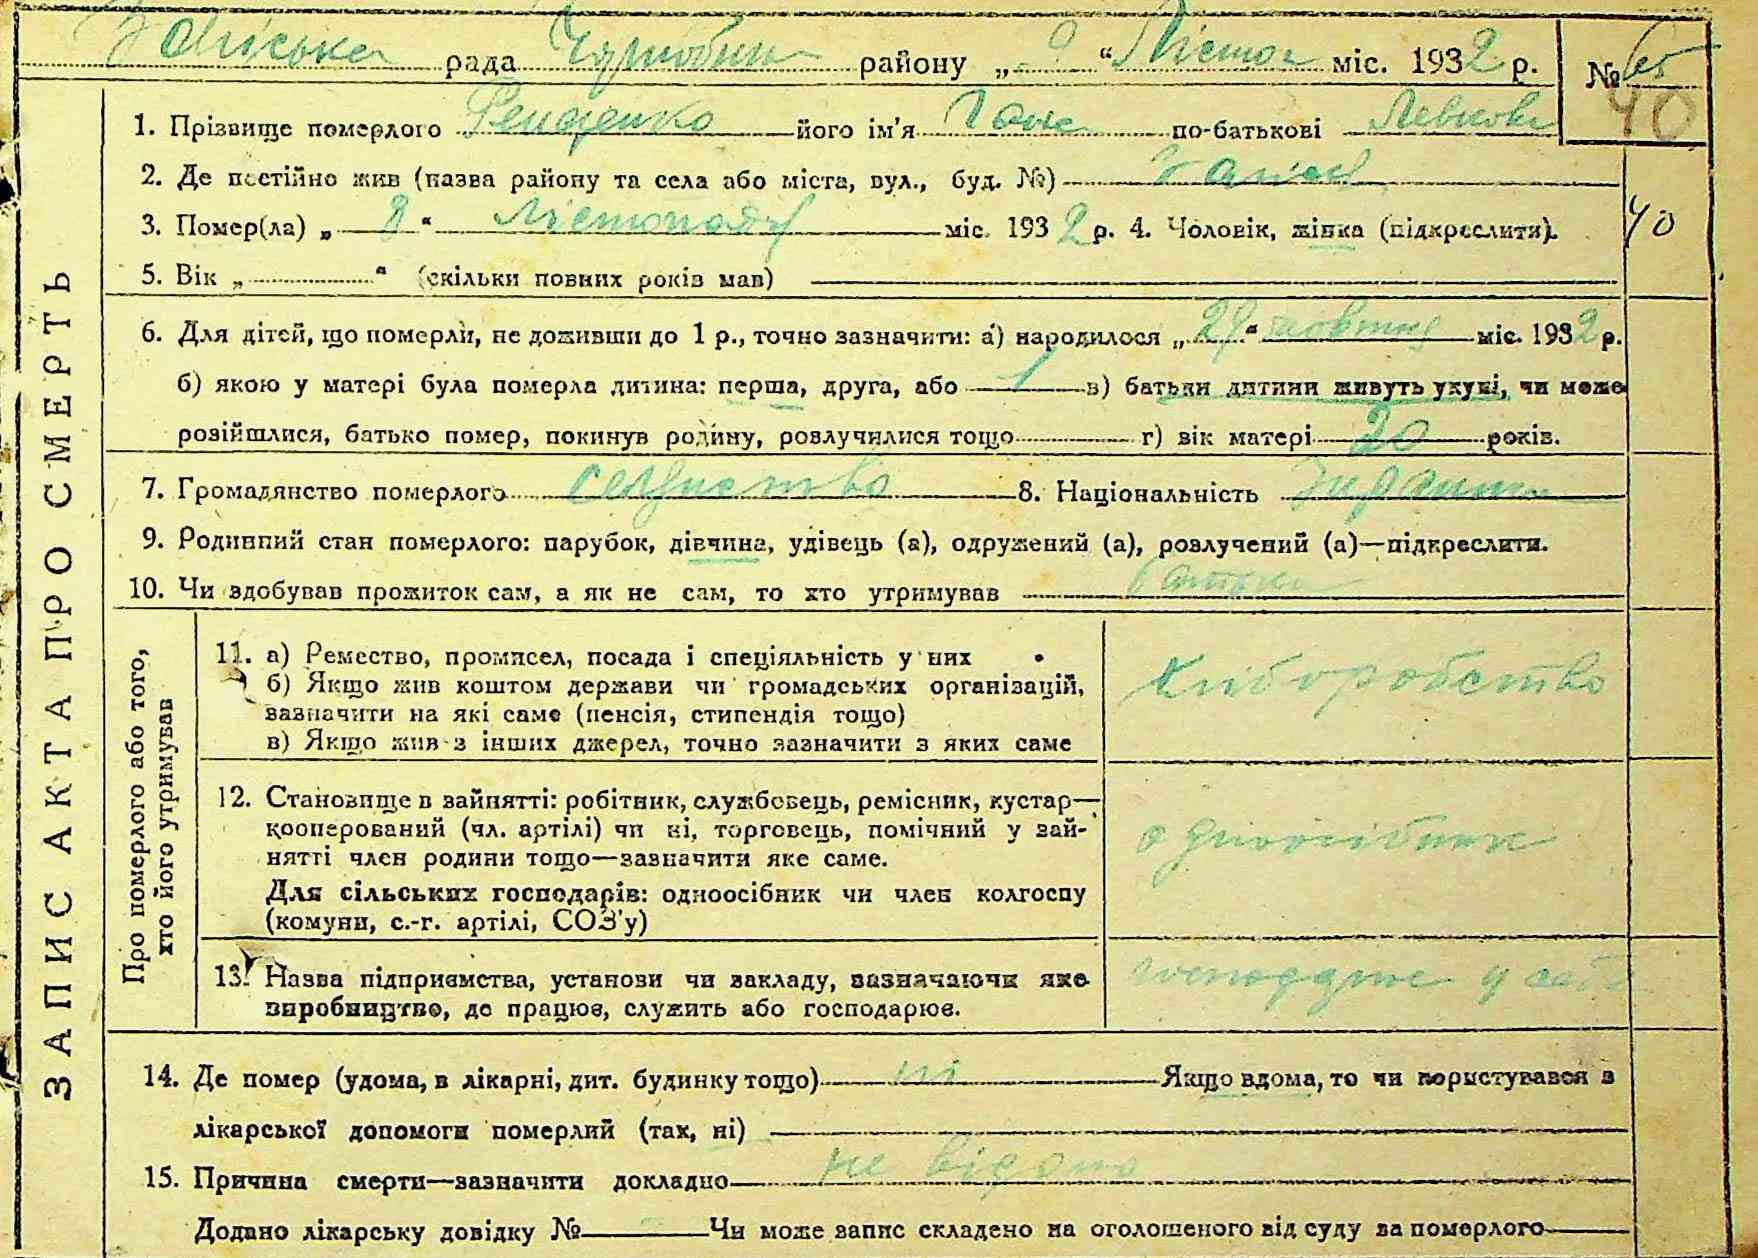 рада району „ “ міс. 1932 р. №
40
1. Прізвище померлого його ім'я по-батькові
2. Де постійно жив (назва району та села або міста, вул., буд. №)
3. Помер(ла) „ 8 “ Лістопаду міс. 1932 р. 4. Чоловік, жінка (підкреслити). 40
5. Вік „ “ (скільки повних років мав)
6. Для дітей, що померли, не доживши до 1 р., точно зазначити: а) народилося „ “ жовтня міс. 1932 р.
б) якою у матері була померла дитина: перша, друга, або 1 в) батьки дитини живуть укупі, чи може
розійшлися, батько помер, покинув родину, розлучилися тощо г) вік матері 20 років.
7. Громадянство померлого 8. Національність
9. Родинний стан померлого: парубок, дівчина, удівець (а), одружений (а), розлучений (а)—підкреслити.
10. Чи здобував прожиток сам, а як не сам, то хто утримував батько
ЗАПИС АКТА ПРО СМЕРТЬ
Про померлого або того,
хто його утримував
11. а) Ремество, промисел, посада і спеціяльність у них
б) Якщо жив коштом держави чи громадських організацій,
зазначити на які саме (пенсія, стипендія тощо)
в) Якщо жив з інших джерел, точно зазначити з яких саме
хліборобство
12. Становище в зайнятті: робітник, службовець, ремісник, кустар—
кооперований (чл. артілі) чи ні, торговець, помічний у зай-
нятті член родини тощо—зазначити яке саме.
Для сільських господарів: одноосібник чи член колгоспу
(комуни, с.-г. артілі, СОЗ'у)
одноосібник
13. Назва підприємства, установи чи закладу, зазначаючи яке
виробництво, де працює, служить або господарює.
господарює у себе
14. Де помер (удома, в лікарні, дит. будинку тощо) ні Якщо вдома, то чи користувався з
лікарської допомоги померлий (так, ні)
15. Причина смерти—зазначити докладно не відомо
Додано лікарську довідку № Чи може запис складено на оголошеного від суду за померлого